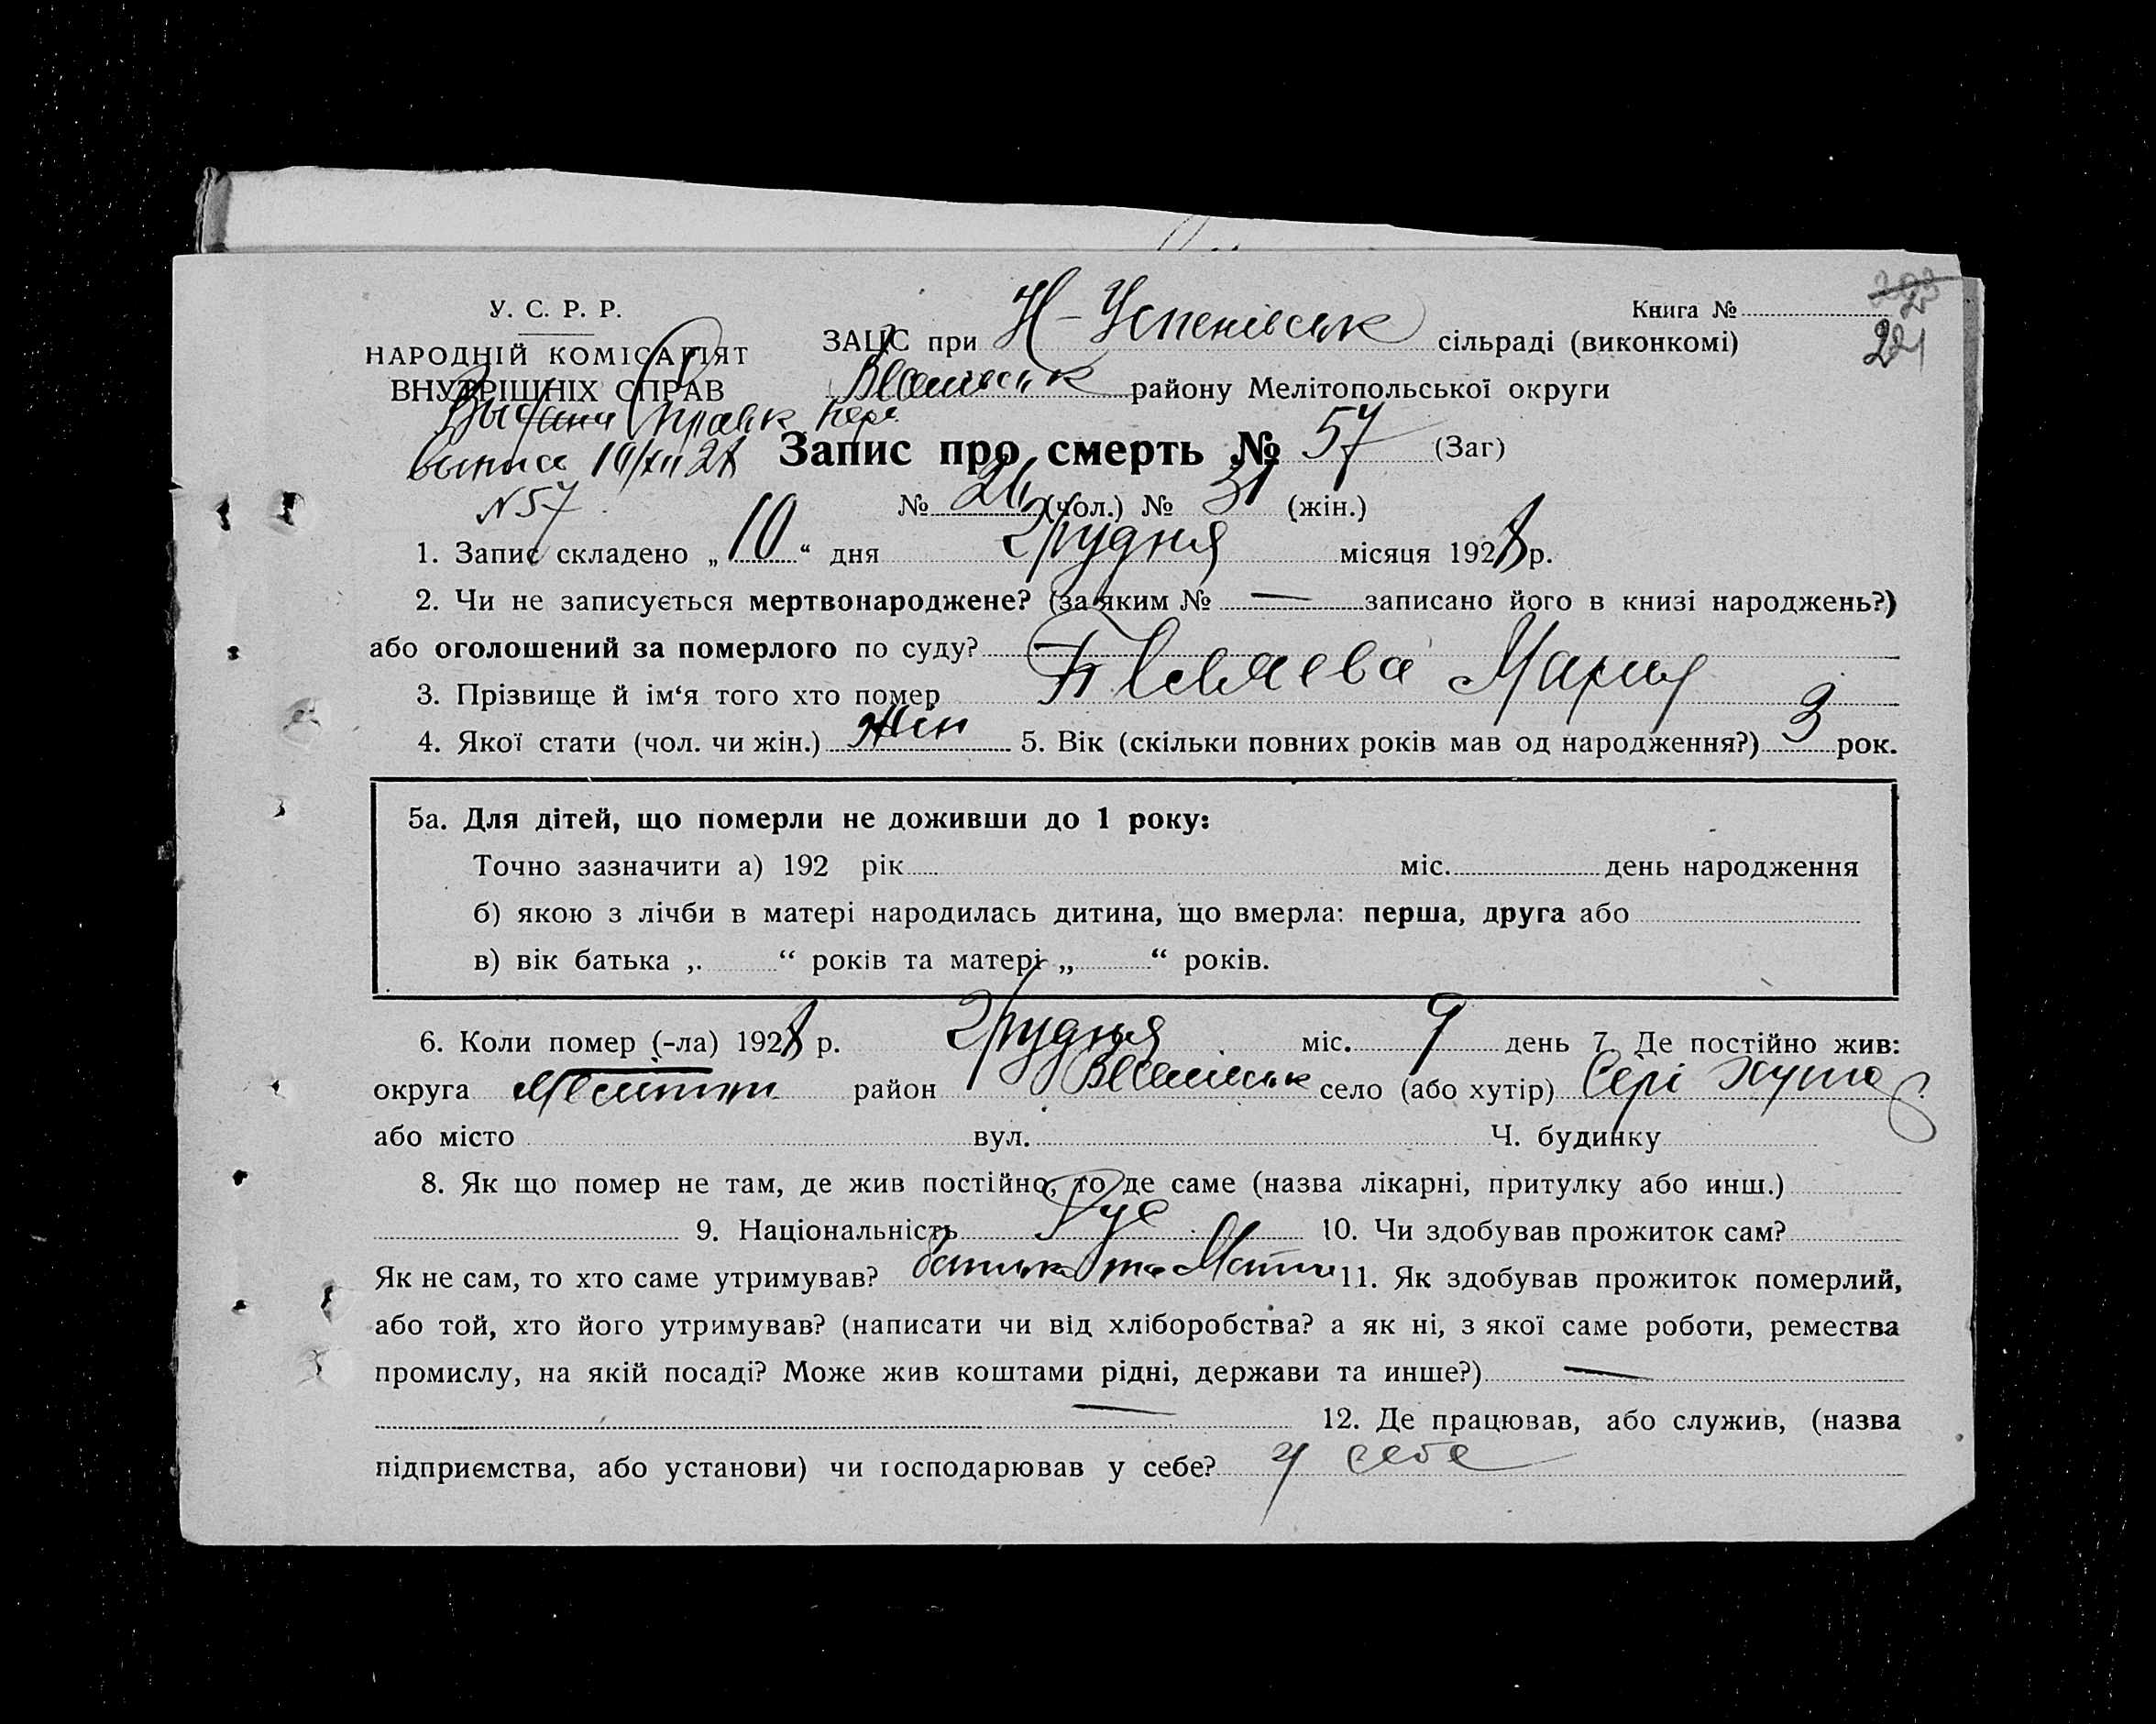 У. С. Р. Р.
Книга №
НАРОДНІЙ КОМІСАРІЯТ
ВНУТРІШНІХ СПРАВ
ЗАЦС при Н-Успенівськ сільраді (виконкомі)
району Мелітопольської округи
221
Запис про смерть № 57 (Заг)
№ 57
№ 26 (чол.) № 31 (жін.)
1. Запис складено „ 10 “ дня Грудня місяця 1928 р.
2. Чи не записується мертвонароджене? (за яким № — записано його в книзі народжень?)
або оголошений за померлого по суду?
3. Прізвище й ім‘я того хто помер Мария
4. Якої стати (чол. чи жін.) жін 5. Вік (скільки повних років мав од народження?) 3 рок.
5а. Для дітей, що померли не доживши до 1 року:
Точно зазначити а) 192 рік міс. день народження
б) якою з лічби в матері народилась дитина, що вмерла: перша, друга або
в) вік батька „ “ років та матері „ “ років.
6. Коли помер (-ла) 1928 р. Грудня міс. 9 день 7. Де постійно жив:
округа район село (або хутір) Сері
або місто вул. Ч. будинку
8. Як що помер не там, де жив постійно, то де саме (назва лікарні, притулку або инш.)
9. Національність Рус 10. Чи здобував прожиток сам?
Як не сам, то хто саме утримував? батько та Мати 11. Як здобував прожиток померлий,
або той, хто його утримував? (написати чи від хліборобства? а як ні, з якої саме роботи, ремества
промислу, на якій посаді? Може жив коштами рідні, держави та инше?) —
— 12. Де працював, або служив, (назва
підприємства, або установи) чи господарював у себе? у себе